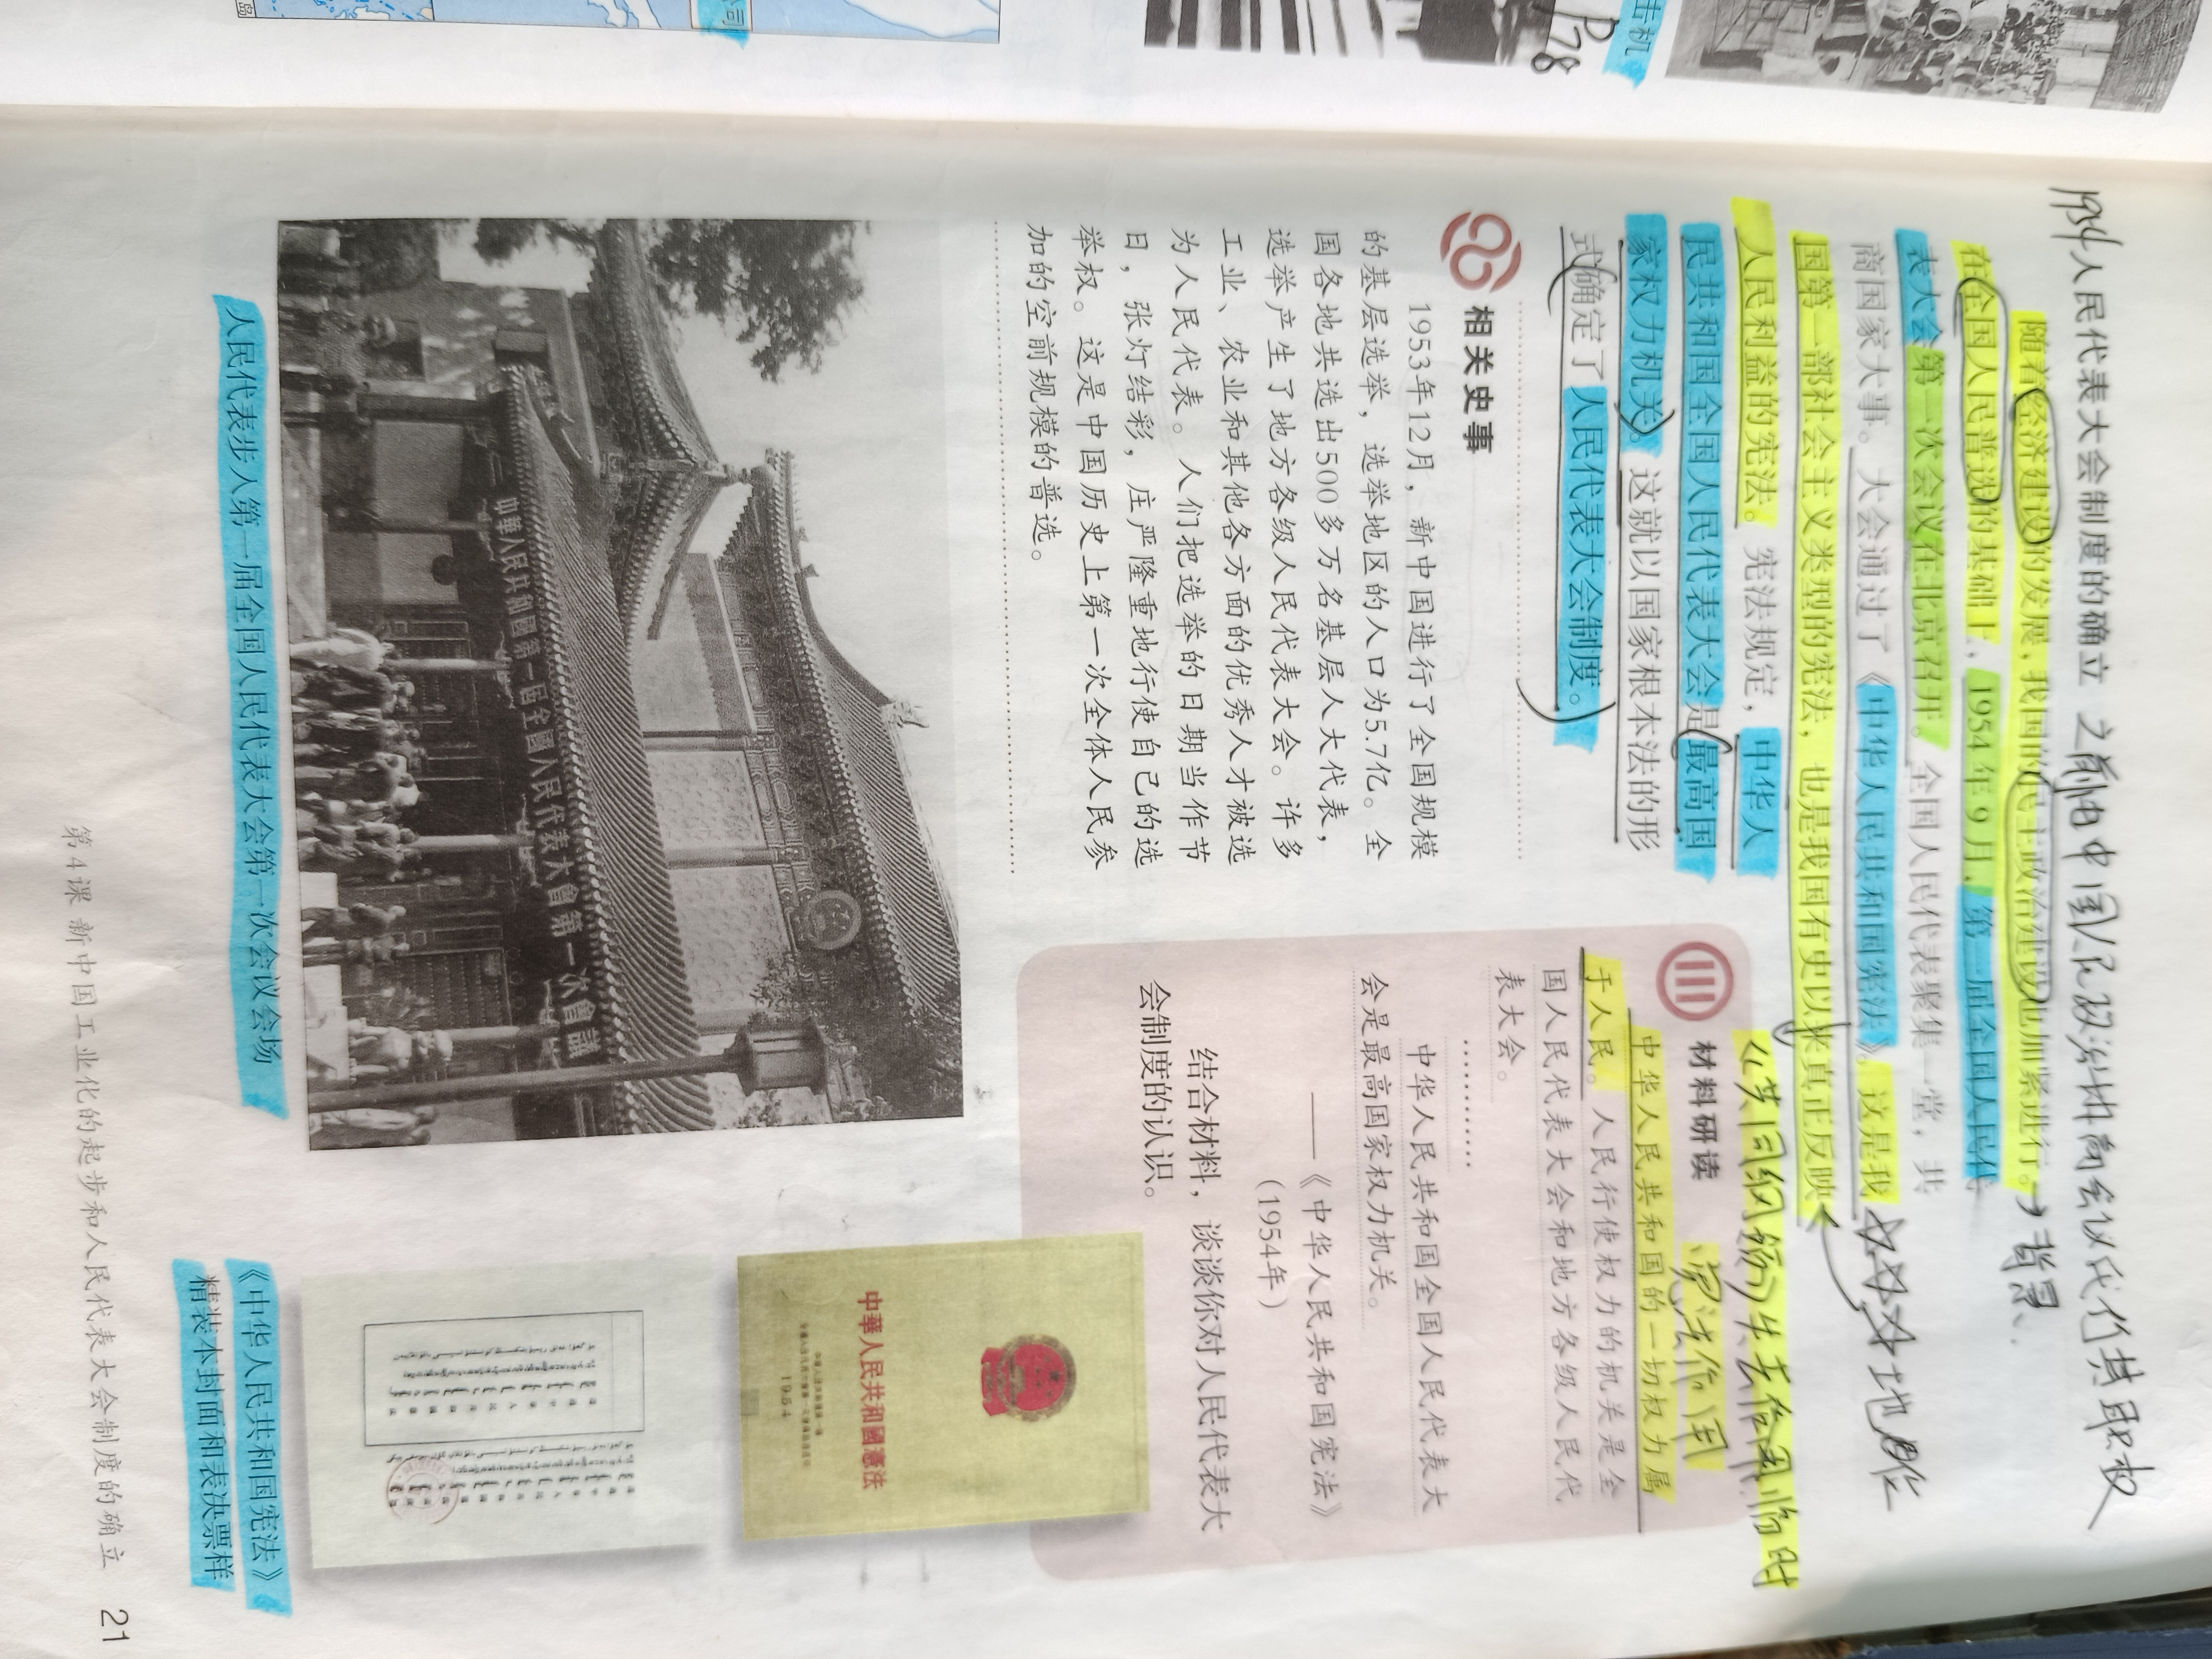 击机
P78
司
岛
1954人民代表大会制度的确立 之前由中国人民政治协商会议代行其职权
随着经济建设的发展，我国的民主政治建设也加紧进行。→背景
在全国人民普选的基础上，1954年9月，第一届全国人民代
表大会第一次会议在北京召开。全国人民代表聚集一堂，共
商国家大事。大会通过了《中华人民共和国宪法》。这是我
国第一部社会主义类型的宪法，也是我国有史以来真正反映
地位
人民利益的宪法。宪法规定，中华人
民共和国全国人民代表大会是最高国
家权力机关。这就以国家根本法的形
式确定了人民代表大会制度。
《共同纲领》失去临时
宪法作用
相关史事
1953年12月，新中国进行了全国规模
的基层选举，选举地区的人口为5.7亿。全
国各地共选出500多万名基层人大代表，
选举产生了地方各级人民代表大会。许多
工业、农业和其他各方面的优秀人才被选
为人民代表。人们把选举的日期当作节
日，张灯结彩，庄严隆重地行使自己的选
举权。这是中国历史上第一次全体人民参
加的空前规模的普选。
材料研读
中华人民共和国的一切权力属
于人民。人民行使权力的机关是全
国人民代表大会和地方各级人民代
表大会。
…………
中华人民共和国全国人民代表大
会是最高国家权力机关。
——《中华人民共和国宪法》
（1954年）
结合材料，谈谈你对人民代表大
会制度的认识。
中華人民共和國第一届全國人民代表大會第一次會議
人民代表步入第一届全国人民代表大会第一次会议会场
中華人民共和國憲法
1954
《中华人民共和国宪法》
精装本封面和表决票样
第4课 新中国工业化的起步和人民代表大会制度的确立 21